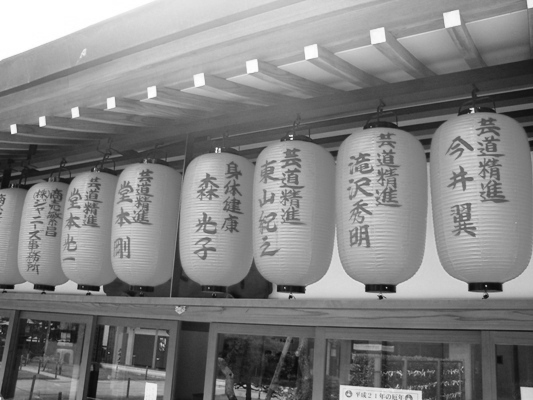 芸道精進
今井翼
芸道精進
滝沢秀明
芸道精進
東山紀之
身体健康
森光子
芸道精進
堂本剛
芸道精進
堂本光一
商売繁昌
㈱ジャニーズ事務所
平成21年の厄年